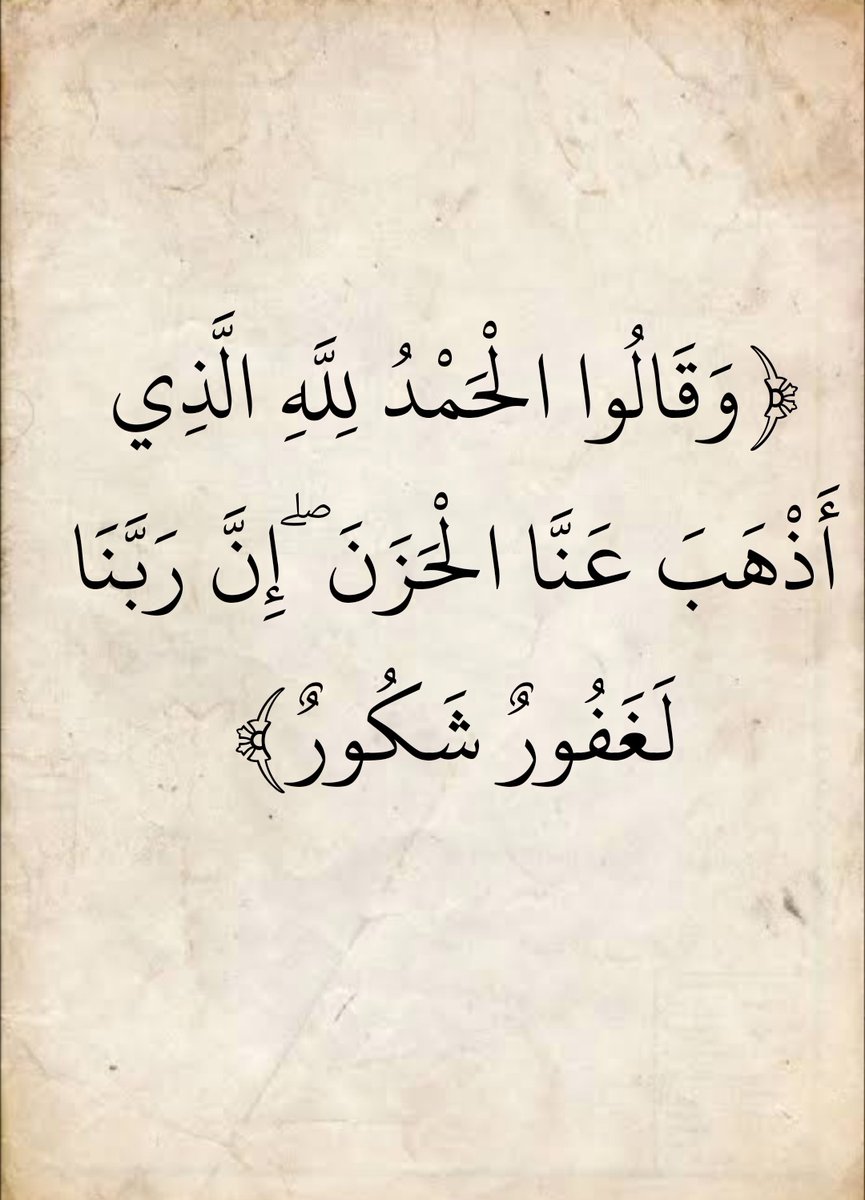 ﴿وَقَالُوا الْحَمْدُ لِلَّهِ الَّذِي
أَذْهَبَ عَنَّا الْحَزَنَ ۖ إِنَّ رَبَّنَا
لَغَفُورٌ شَكُورٌ﴾